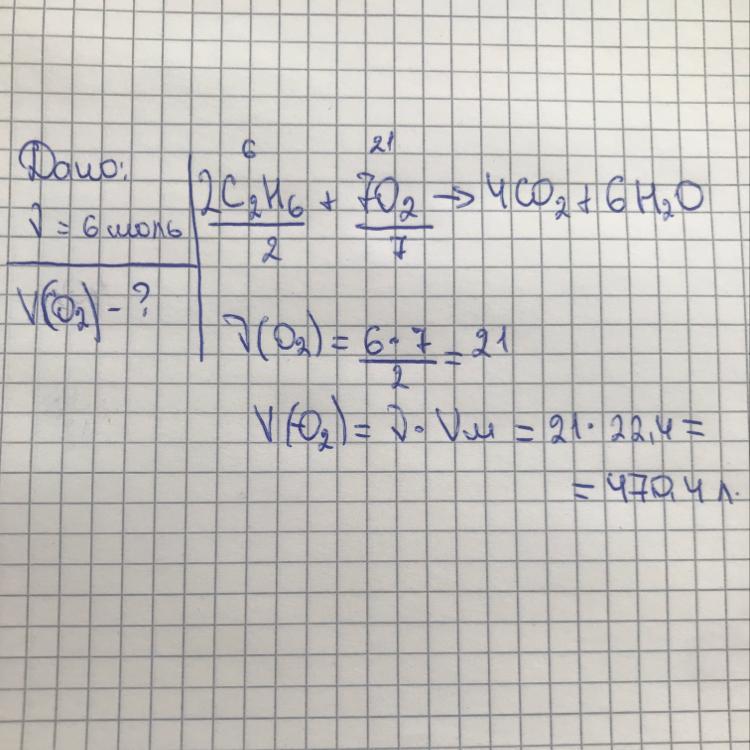 Дано:
ν = 6 моль
V(O₂) - ?
6 21
2C₂H₆ + 7O₂ → 4CO₂ + 6H₂O
2 7
ν(O₂) = 6·7/2 = 21
V(O₂) = ν · Vм = 21 · 22,4 =
= 470,4 л.